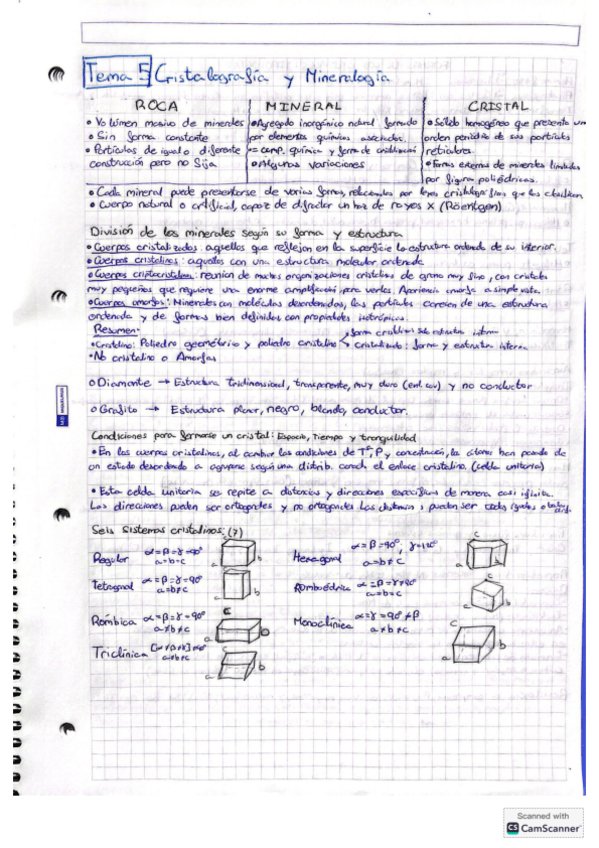 Tema 5 Cristalografía y Mineralogía
ROCA MINERAL CRISTAL
• Volumen masivo de minerales
• Sin forma constante
• Partículas de igual o diferente
construcción pero no fija
• Agregado inorgánico natural formado
por elementos químicos asociados.
= comp. química y forma de cristalización
• Algunas variaciones
• Sólido homogéneo que presenta un
orden periódico de sus partículas
reticulares.
• Formas externas de minerales limitadas
por figuras poliédricas.
• Cada mineral puede presentarse de varias formas, relacionadas por leyes cristalográficas que los clasifican
• Cuerpo natural o artificial, capaz de difractar un haz de rayos X (Röentgen)
División de los minerales según su forma y estructura
• Cuerpos cristalizados: aquellos que reflejan en la superficie la estructura ordenada de su interior.
• Cuerpos cristalinos: aquellos con una estructura molecular ordenada
• Cuerpos criptocristalinos: reunion de muchas organizaciones cristalinas de grano muy fino, con cristales
muy pequeños que requiere una enorme amplificación para verlos. Apariencia amorfa a simple vista.
• Cuerpos amorfos: Minerales con moléculas desordenadas, las partículas carecen de una estructura
ordenada y de formas bien definidas con propiedades isotrópicas.
Resumen:
• Cristalino: Poliedro geométrico y poliedro cristalino
forma cristalina sale estructura interna
cristalizado: forma y estructura interna
• No cristalino o Amorfos
o Diamante → Estructura tridimensional, transparente, muy duro (enl. cov) y no conductor
o Grafito → Estructura planar, negro, blando, conductor.
Condiciones para formarse un cristal: Espacio, tiempo y tranquilidad
• En los cuerpos cristalinos, al cambiar las condiciones de Tª, P y concentración, los átomos han pasado de
un estado desordenado a agruparse según una distrib. coord. el enlace cristalino. (celda unitaria)
• Esta celda unitaria se repite a distancias y direcciones específicas de manera casi infinita.
Las direcciones pueden ser ortogonales y no ortogonales. Las distancias pueden ser todas iguales o
Seis sistemas cristalinos: (7)
Regular α=β=γ=90° a=b=c
c a b
Hexagonal α=β=90°, γ=120° a=b≠c
c a b
Tetragonal α=β=γ=90° a=b≠c
a b
Romboédrica α=β=γ≠90° a=b=c
a b
Rómbica α=β=γ=90° a≠b≠c
c a b
Monoclínica α=γ=90°≠β a≠b≠c
c a b
Triclínica [α≠β≠γ]≠90° a≠b≠c
c a b
Scanned with
CS CamScanner